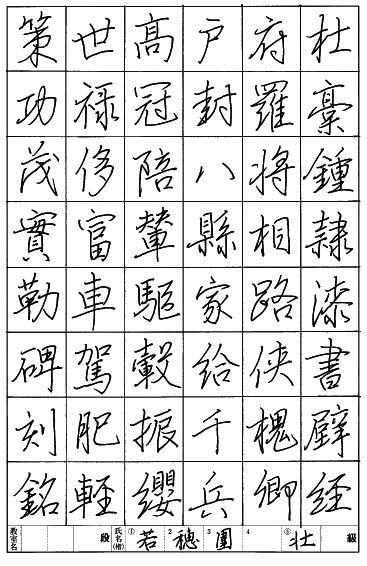 杜稾鍾隷漆書壁経
府羅将相路侠槐卿
戸封八縣家給千兵
高冠陪輦驅轂振纓
世禄侈富車駕肥軽
策功茂實勒碑刻銘
教室名 段 氏名(楷) ① 若 2 穂 3 圍 4 ⑤ 壮 級